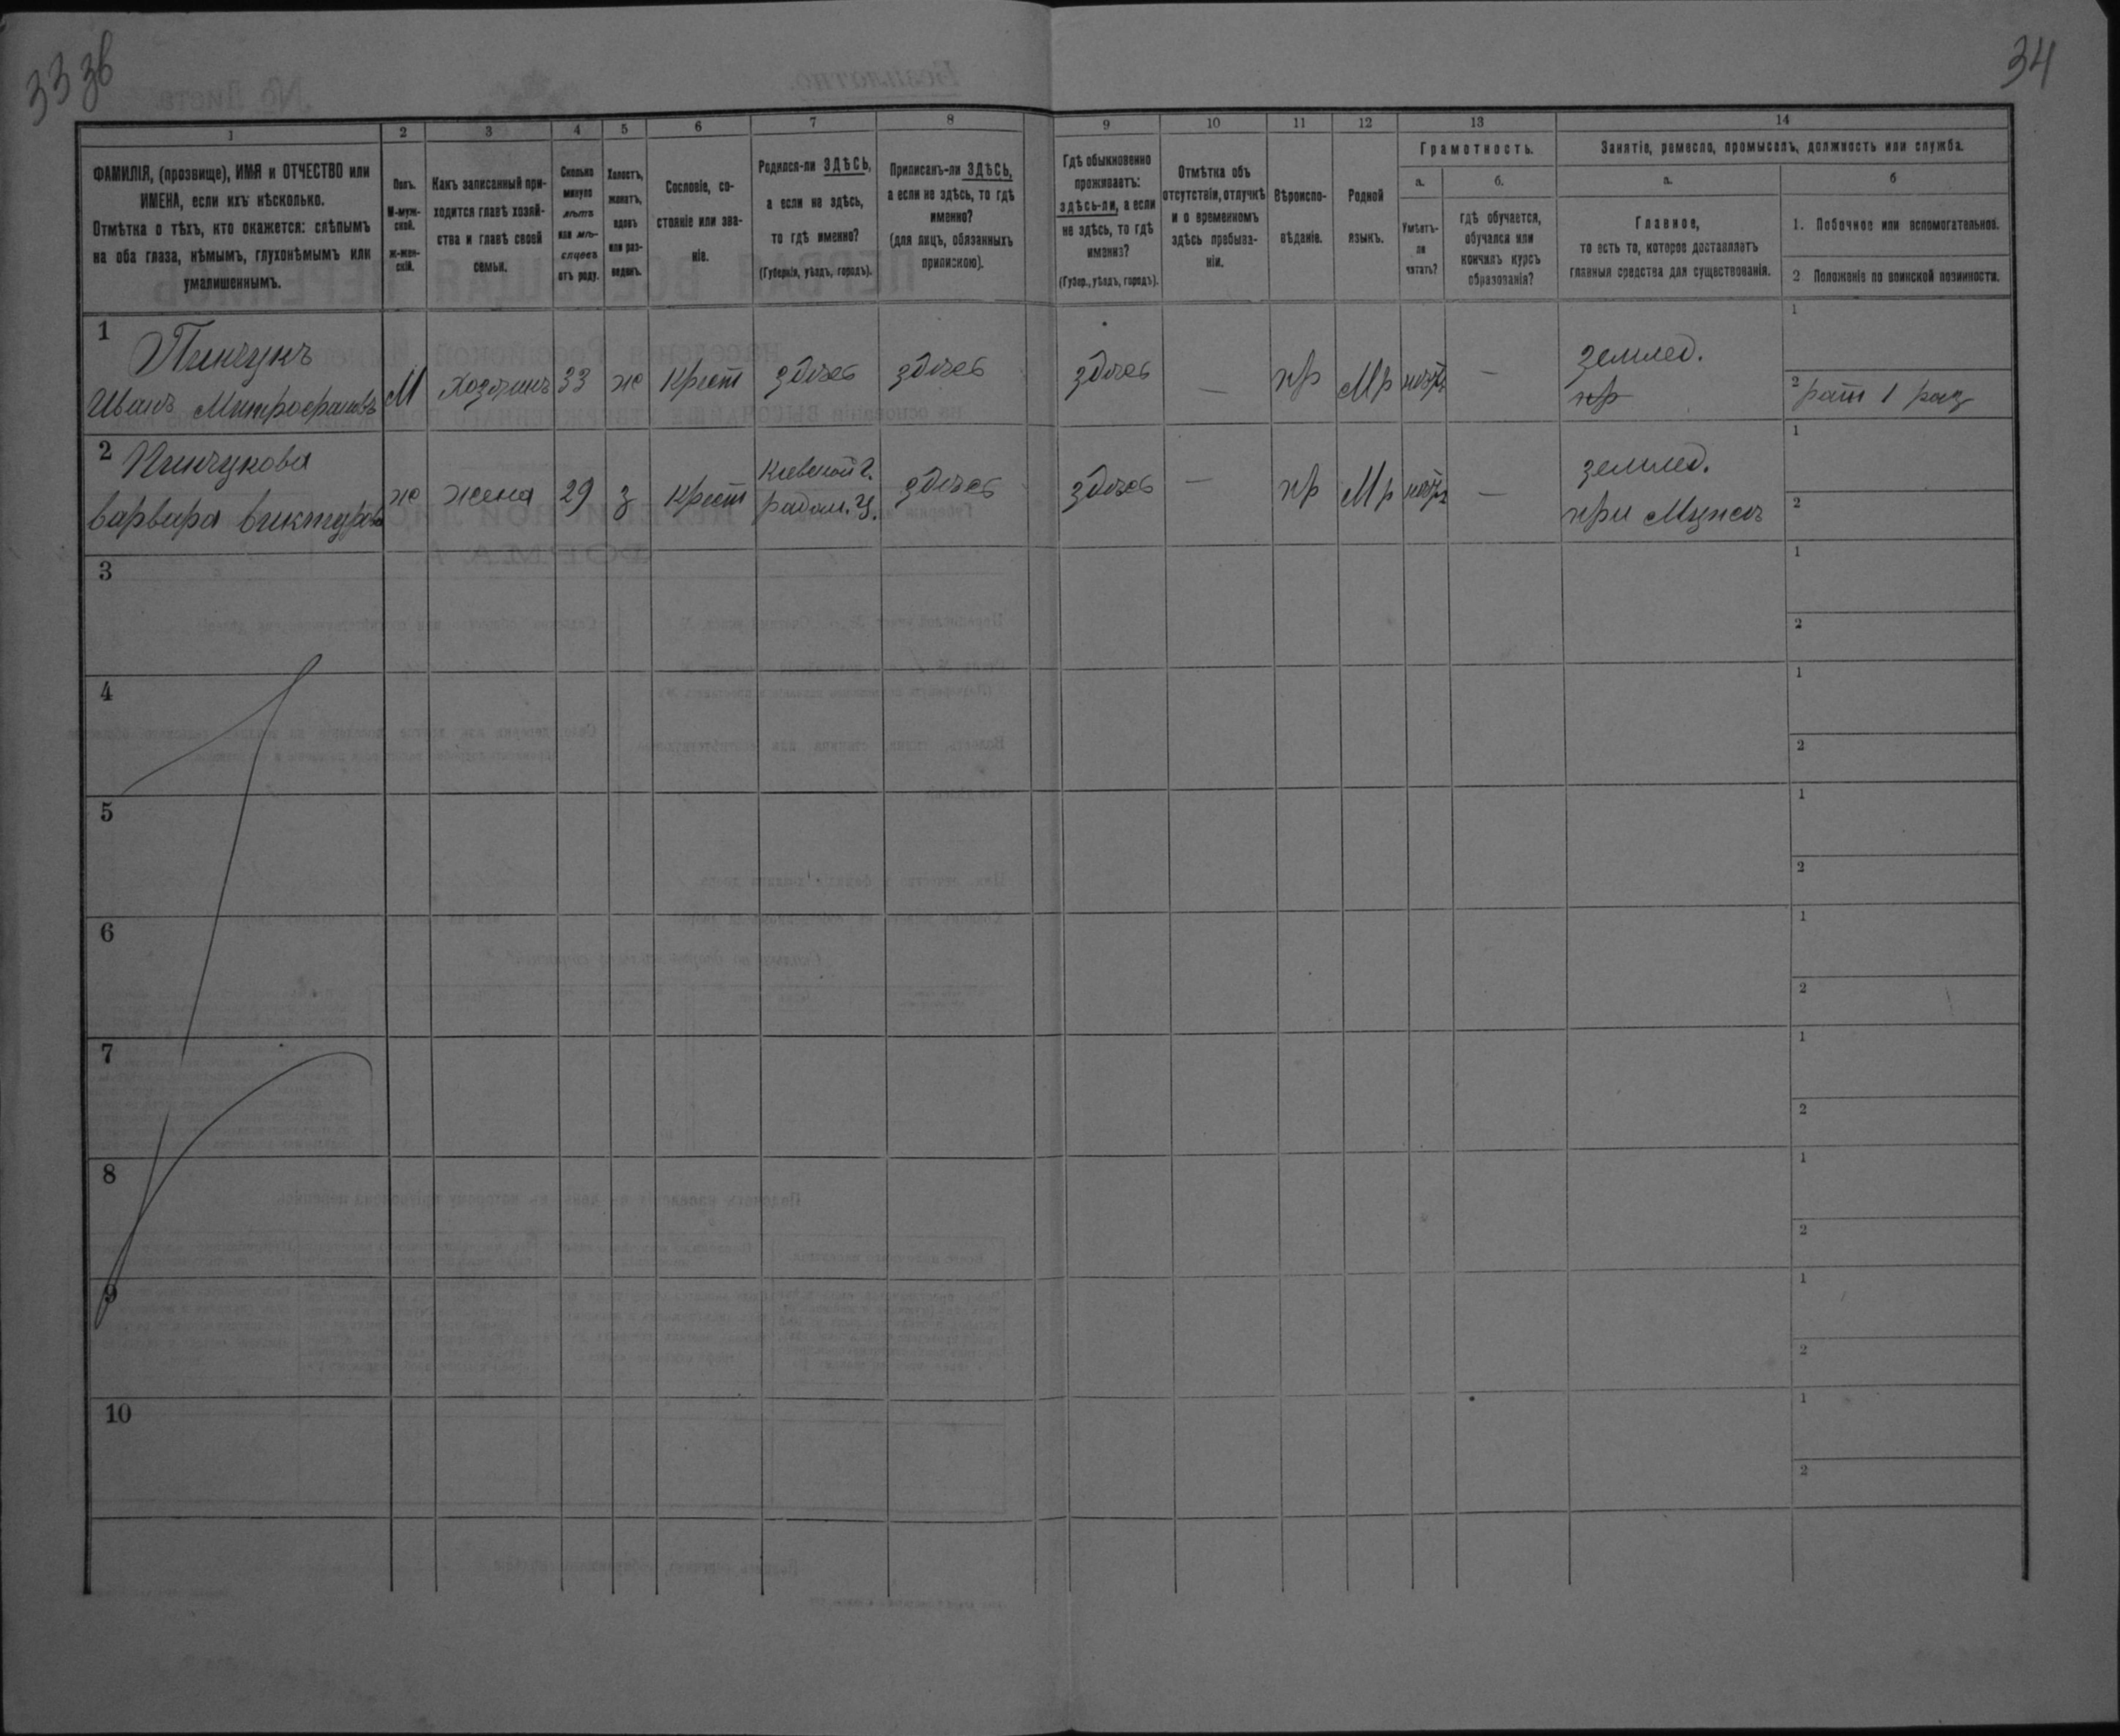 33 зв
34
1
2
3
4
5
6
7
8
9
10
11
12
13
14
ФАМИЛІЯ, (прозвище), ИМЯ и ОТЧЕСТВО или
ИМЕНА, если ихъ нѣсколько.
Отмѣтка о тѣхъ, кто окажется: слѣпымъ
на оба глаза, нѣмымъ, глухонѣмымъ или
умалишеннымъ.
Полъ.
М-муж-
ской.
ж-жен-
скій.
Какъ записанный при-
ходится главѣ хозяй-
ства и главѣ своей
семьи.
Сколько
минуло
лѣтъ
или мѣ-
сяцевъ
отъ роду.
Холостъ,
женатъ,
вдовъ
или раз-
веденъ.
Сословіе, со-
стояніе или зва-
ніе.
Родился-ли ЗДѢСЬ,
а если не здѣсь,
то гдѣ именно?
(Губернія, уѣздъ, городъ).
Приписанъ-ли ЗДѢСЬ,
а если не здѣсь, то гдѣ
именно?
(для лицъ, обязанныхъ
припискою).
Гдѣ обыкновенно
проживаетъ:
здѣсь-ли, а если
не здѣсь, то гдѣ
именно?
(Губер., уѣздъ, городъ).
Отмѣтка объ
отсутствіи, отлучкѣ
и о временномъ
здѣсь пребыва-
ніи.
Вѣроиспо-
вѣданіе.
Родной
языкъ.
Грамотность.
а.
Умѣетъ-
ли
читать?
б.
гдѣ обучается,
обучался или
кончилъ курсъ
образованія?
Занятіе, ремесло, промыселъ, должность или служба.
а.
Главное,
то есть то, которое доставляетъ
главныя средства для существованія.
б
1. Побочное или вспомогательное.
2 Положеніе по воинской повинности.
1
Пинчукъ
Иванъ Митрофановъ
М
Хозяинъ
33
ж
Крест
здѣсь
здѣсь
здѣсь
—
пр
Мр
нѣтъ
—
землед.
пр
1
2 рат 1 раз
2
Пинчукова
Варвара Викторова
ж
жена
29
з
Крест
Киевской Г.
радом. У.
здѣсь
здѣсь
—
пр
Мр
нѣтъ
—
землед.
при Мужѣ
1
2
3
1
2
4
1
2
5
1
2
6
1
2
7
1
2
8
1
2
9
1
2
10
1
2